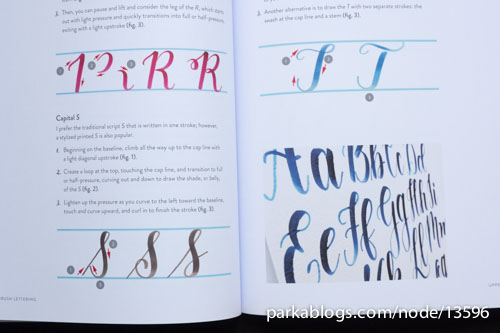 3. Then, you can pause and lift and consider the leg of the R, which starts
out with light pressure and quickly transitions into full or half-pressure,
exiting with a light upstroke (fig. 3).
R R R
Capital S
I prefer the traditional script S that is written in one stroke; however,
a stylized printed S is also popular.
1. Beginning on the baseline, climb all the way up to the cap line with
a light diagonal upstroke (fig. 1).
2. Create a loop at the top, touching the cap line, and transition to full
or half-pressure, curving out and down to draw the shade, or belly,
of the S (fig. 2).
3. Lighten up the pressure as you curve to the left toward the baseline,
touch and curve upward, and curl in to finish the stroke (fig. 3).
S S S
LETTERING
3. Another alternative is to draw the T with two separate strokes: the
swash at the cap line and a stem (fig. 3).
T T
parkablogs.com/node/13596